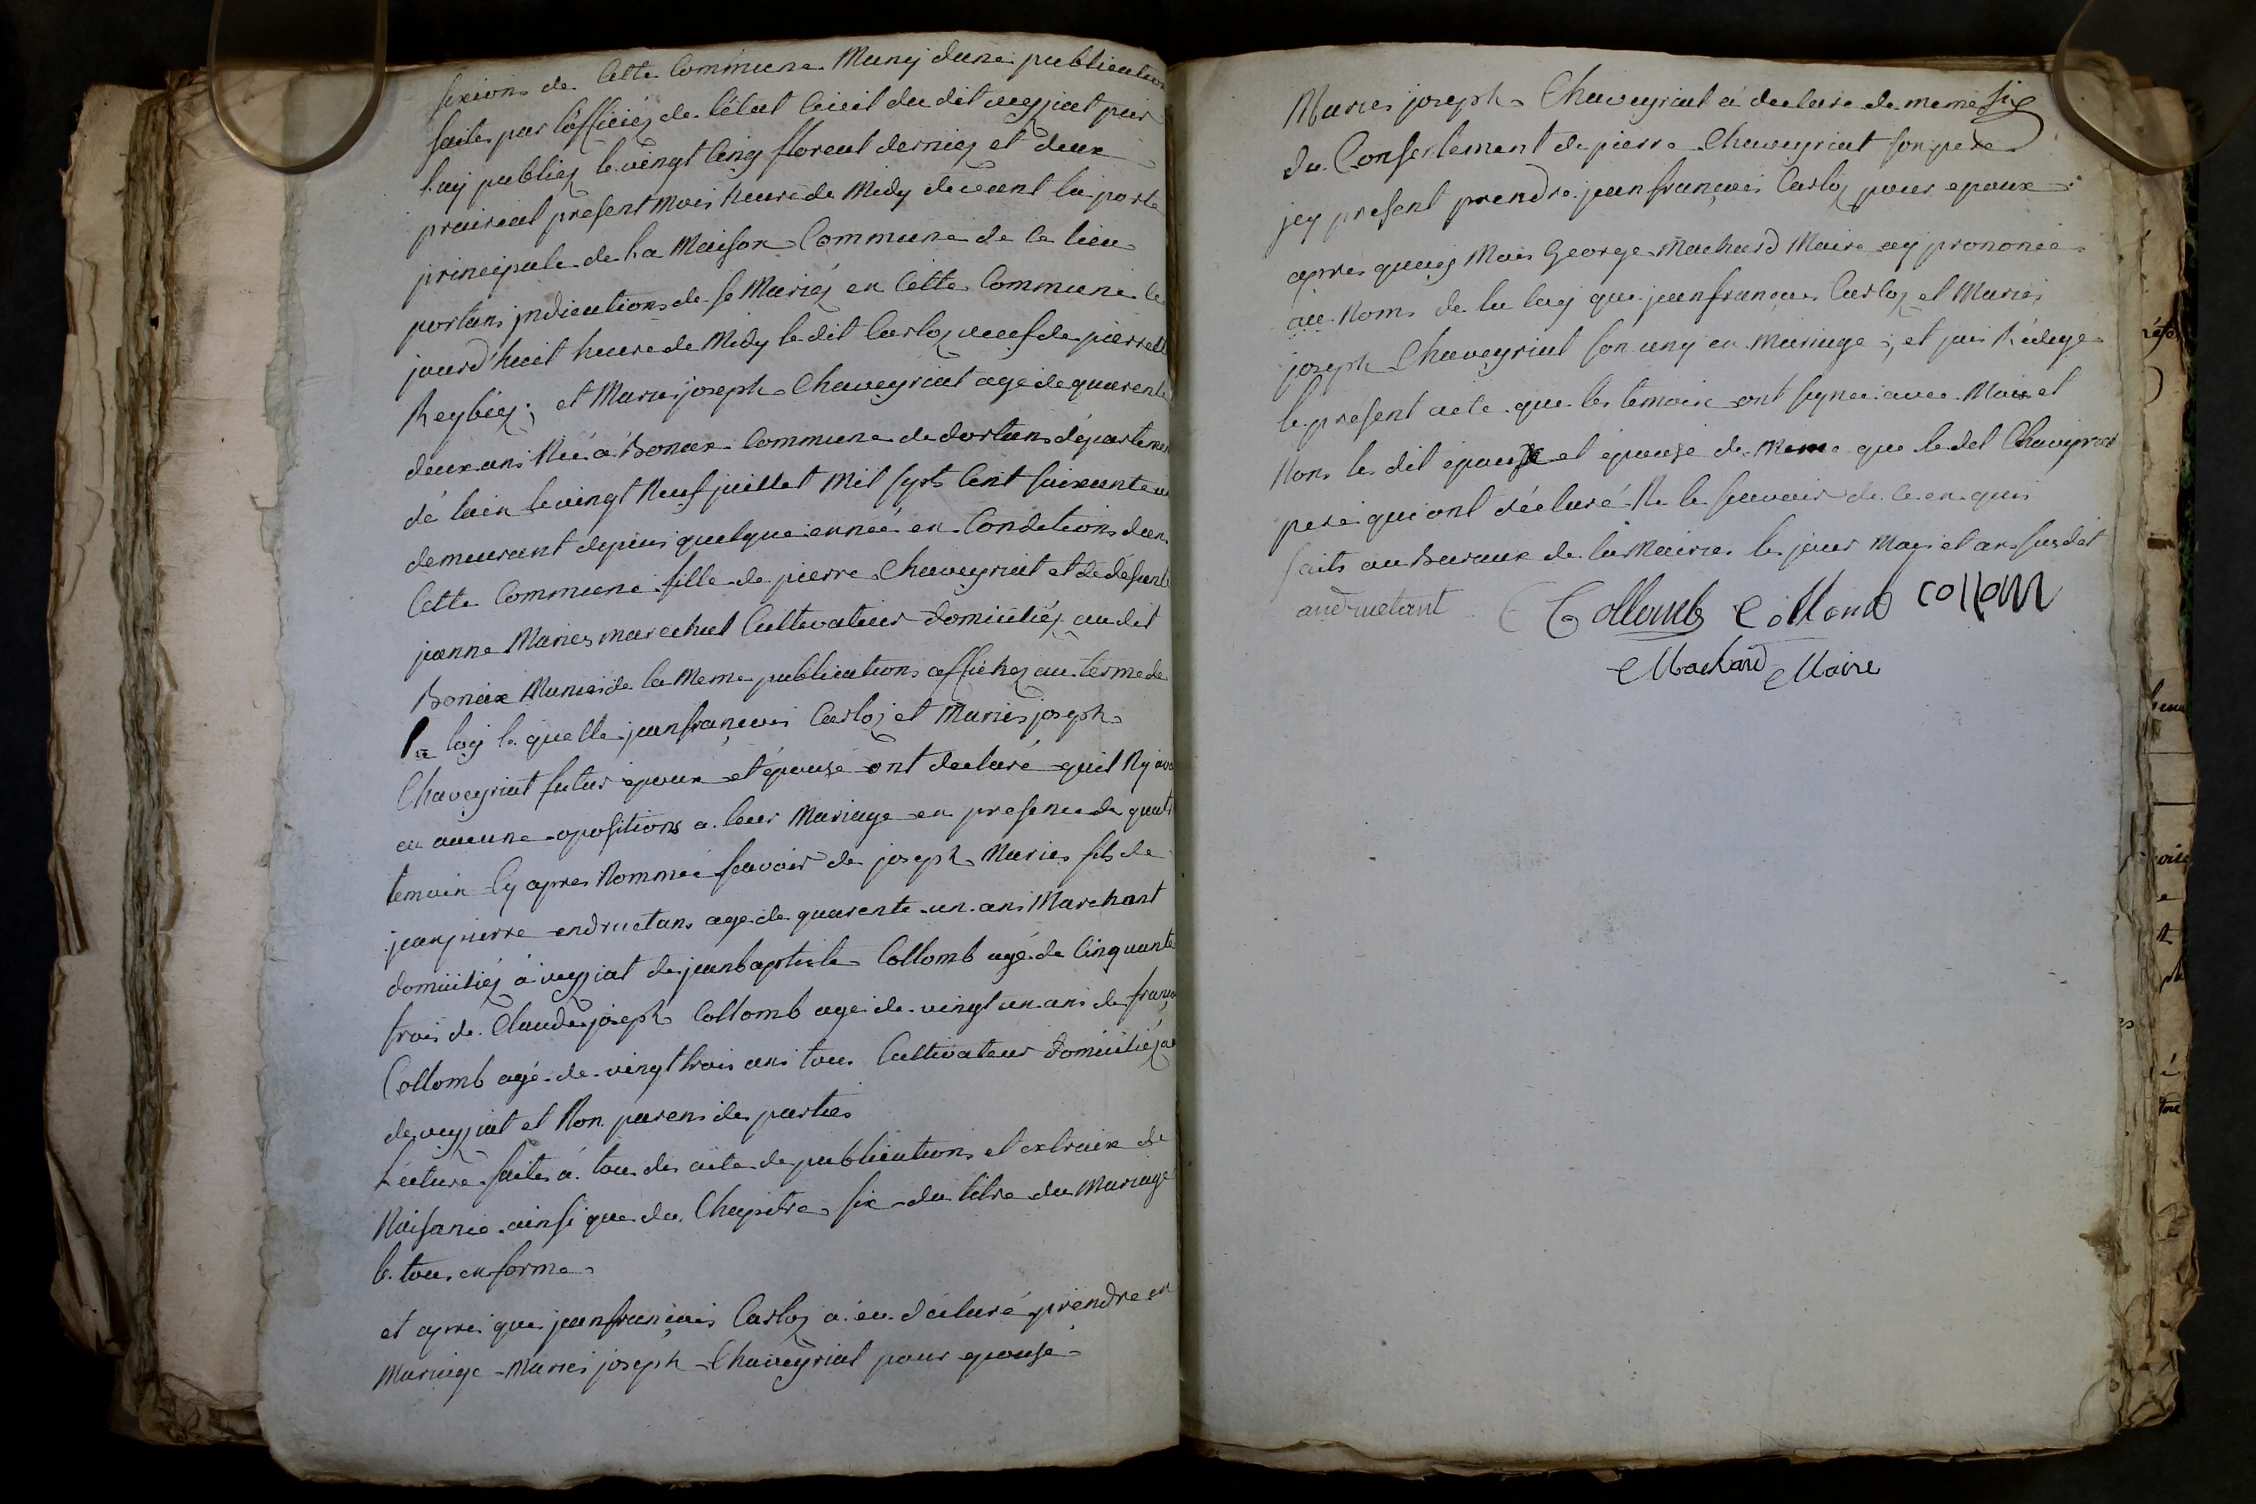 sixions de Cette Commune Muny dune publication
faite par l'officiez de létat Civil du dit veyziat par
luy publiez le vingt Cinq floreal derniez et deux
prairial present mois heure de Midy devant la porte
principale de La Maison Commune de Ce lieu
portans jndications de se Mariéz en Cette Commune Ce
jourd'huit heure de Midy le dit Carloz veuf de pierrette
Reybiez; et Marie joseph Chaveyriat agé de quarente
deux ans Née á Bonax Commune de dortans départemen
dé lain le vingt Neuf juillet Mil sept Cent soixante un
demeurant depuis quelque année en Conditions dans
Cette Commune fille de pierre Chaveyriat et de défunte
jeanne Maries marechal Cultivateur domiciliéz audit
Bonax Munies de la Meme publications affichez au terme de
La loy la quelle jeanfrançois Carloz et Maries joseph
Chaveyriat futur époux et épouse ont declaré quil Ny avo
eu aucune opositions a leur Mariage en presence de quatr
temoin Cy apres Nommée savoir de joseph Maries fils de
jeanpierre andructans age de quarente un ans Marchant
domiciliez á veyziat de jeanbaptiste Collomb agé de Cinquante
trois de Claude joseph Collomb age de vingt un ans de françoi
Collomb agé de vingt trois ans tous Cultivateur domiciliéz au
de veyziat et Non parens de parties
Lecture faite á tous des acte de publications et extraix de
Naisance ainsi que du Chapitre six du titre du Mariage
le tous en forme
et apres que jeanfrançois Carloz a eu declaré prendre en
Mariage Maries joseph Chaveyriat pour epouse
Maries joseph Chaveyriat á declare de meme six
du Consertement de pierre Chaveyriat son pere
jey present prendre jeanfrançois Carloz pour epoux
apres quoiy Mois George Machard Maire ay prononcé
au Noms de la loy que jeanfrançois Carloz et Maries
joseph Chaveyriat son uny en Mariage; et jais Rédigé
le present acte que les temoin ont signee avec Mois et
Nons les dit epoux et epouse de Meme que le dit Chaveyriat
pere qui ont déclaré Ne le savoir de ce en quis
faits au Bureaux de la Mairie les jour Mois et ans susdit
andructant Collomb Collomb collom
Machard Maire